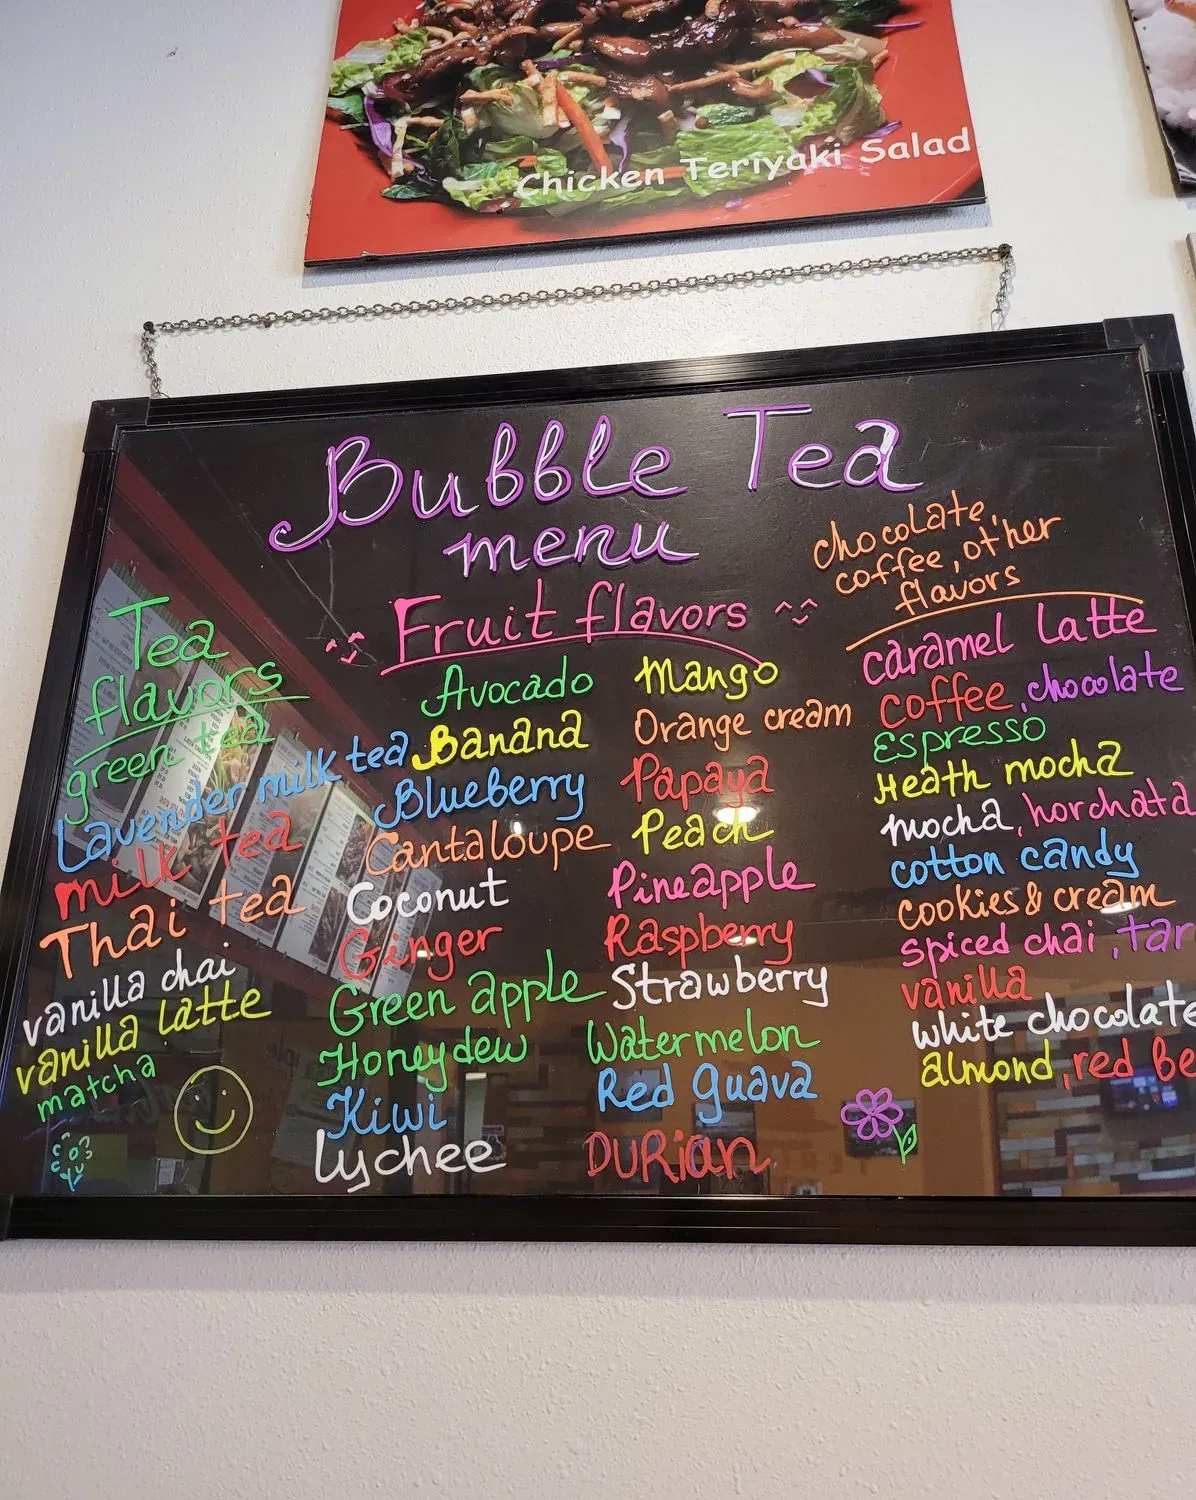 Chicken Teriyaki Salad
Bubble Tea
menu
Tea
flavors
green tea
Lavender milk tea
milk tea
Thai tea
vanilla chai
vanilla latte
matcha
Fruit flavors
Avocado
Banana
Blueberry
Cantaloupe
Coconut
Ginger
Green apple
Honeydew
Kiwi
Lychee
Mango
Orange cream
Papaya
Peach
Pineapple
Raspberry
Strawberry
Watermelon
Red guava
DURian
chocolate,
coffee, other
flavors
caramel latte
coffee, chocolate
Espresso
Heath mocha
mocha, horchata
cotton candy
cookies & cream
spiced chai, tar
vanilla
white chocolate
almond, red be